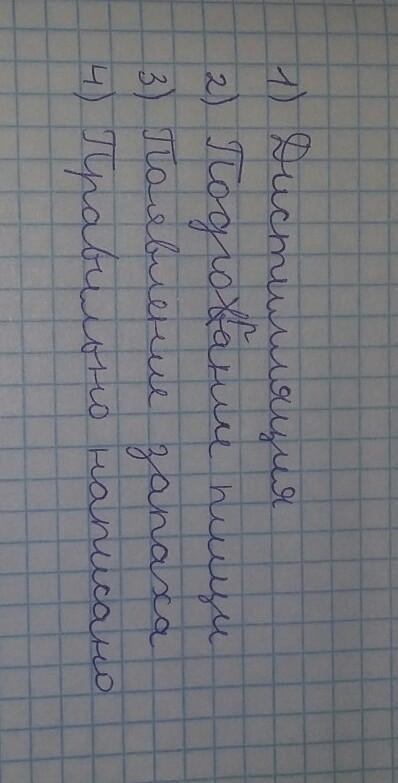 1) Дистилляция
2) Подгорание пищи
3) Появление запаха
4) Правильно написано